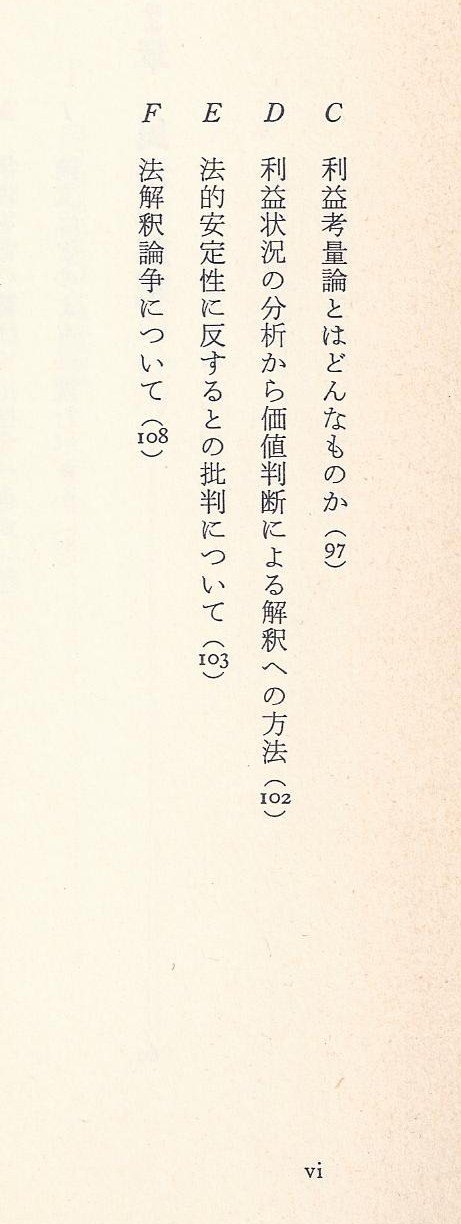 C 利益考量論とはどんなものか（97）
D 利益状況の分析から価値判断による解釈への方法（102）
E 法的安定性に反するとの批判について（103）
F 法解釈論争について（108）
vi